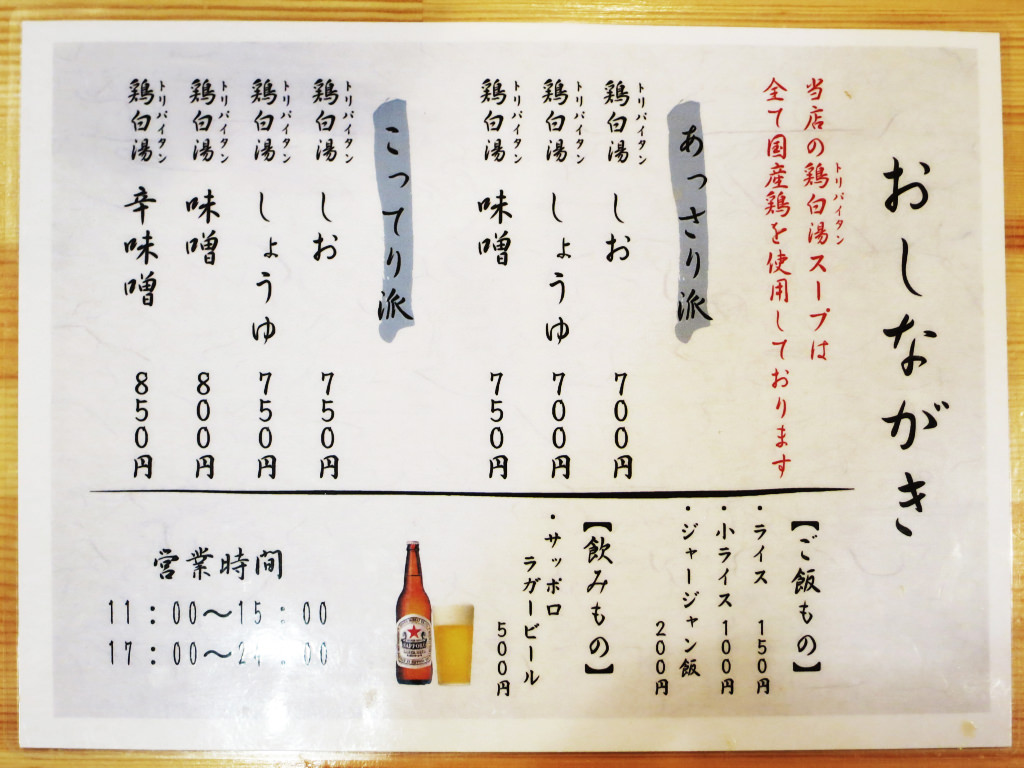 おしながき
当店の鶏白湯スープは
トリパイタン
全て国産鶏を使用しております
あっさり派
鶏白湯 しお 700円
トリパイタン
鶏白湯 しょうゆ 700円
トリパイタン
鶏白湯 味噌 750円
トリパイタン
こってり派
鶏白湯 しお 750円
トリパイタン
鶏白湯 しょうゆ 750円
トリパイタン
鶏白湯 味噌 800円
鶏白湯 辛味噌 850円
トリパイタン
【ご飯もの】
・ライス 150円
・小ライス 100円
・ジャージャン飯
200円
【飲みもの】
・サッポロ
ラガービール
500円
SAPPORO
営業時間
11:00〜15:00
17:00〜24:00